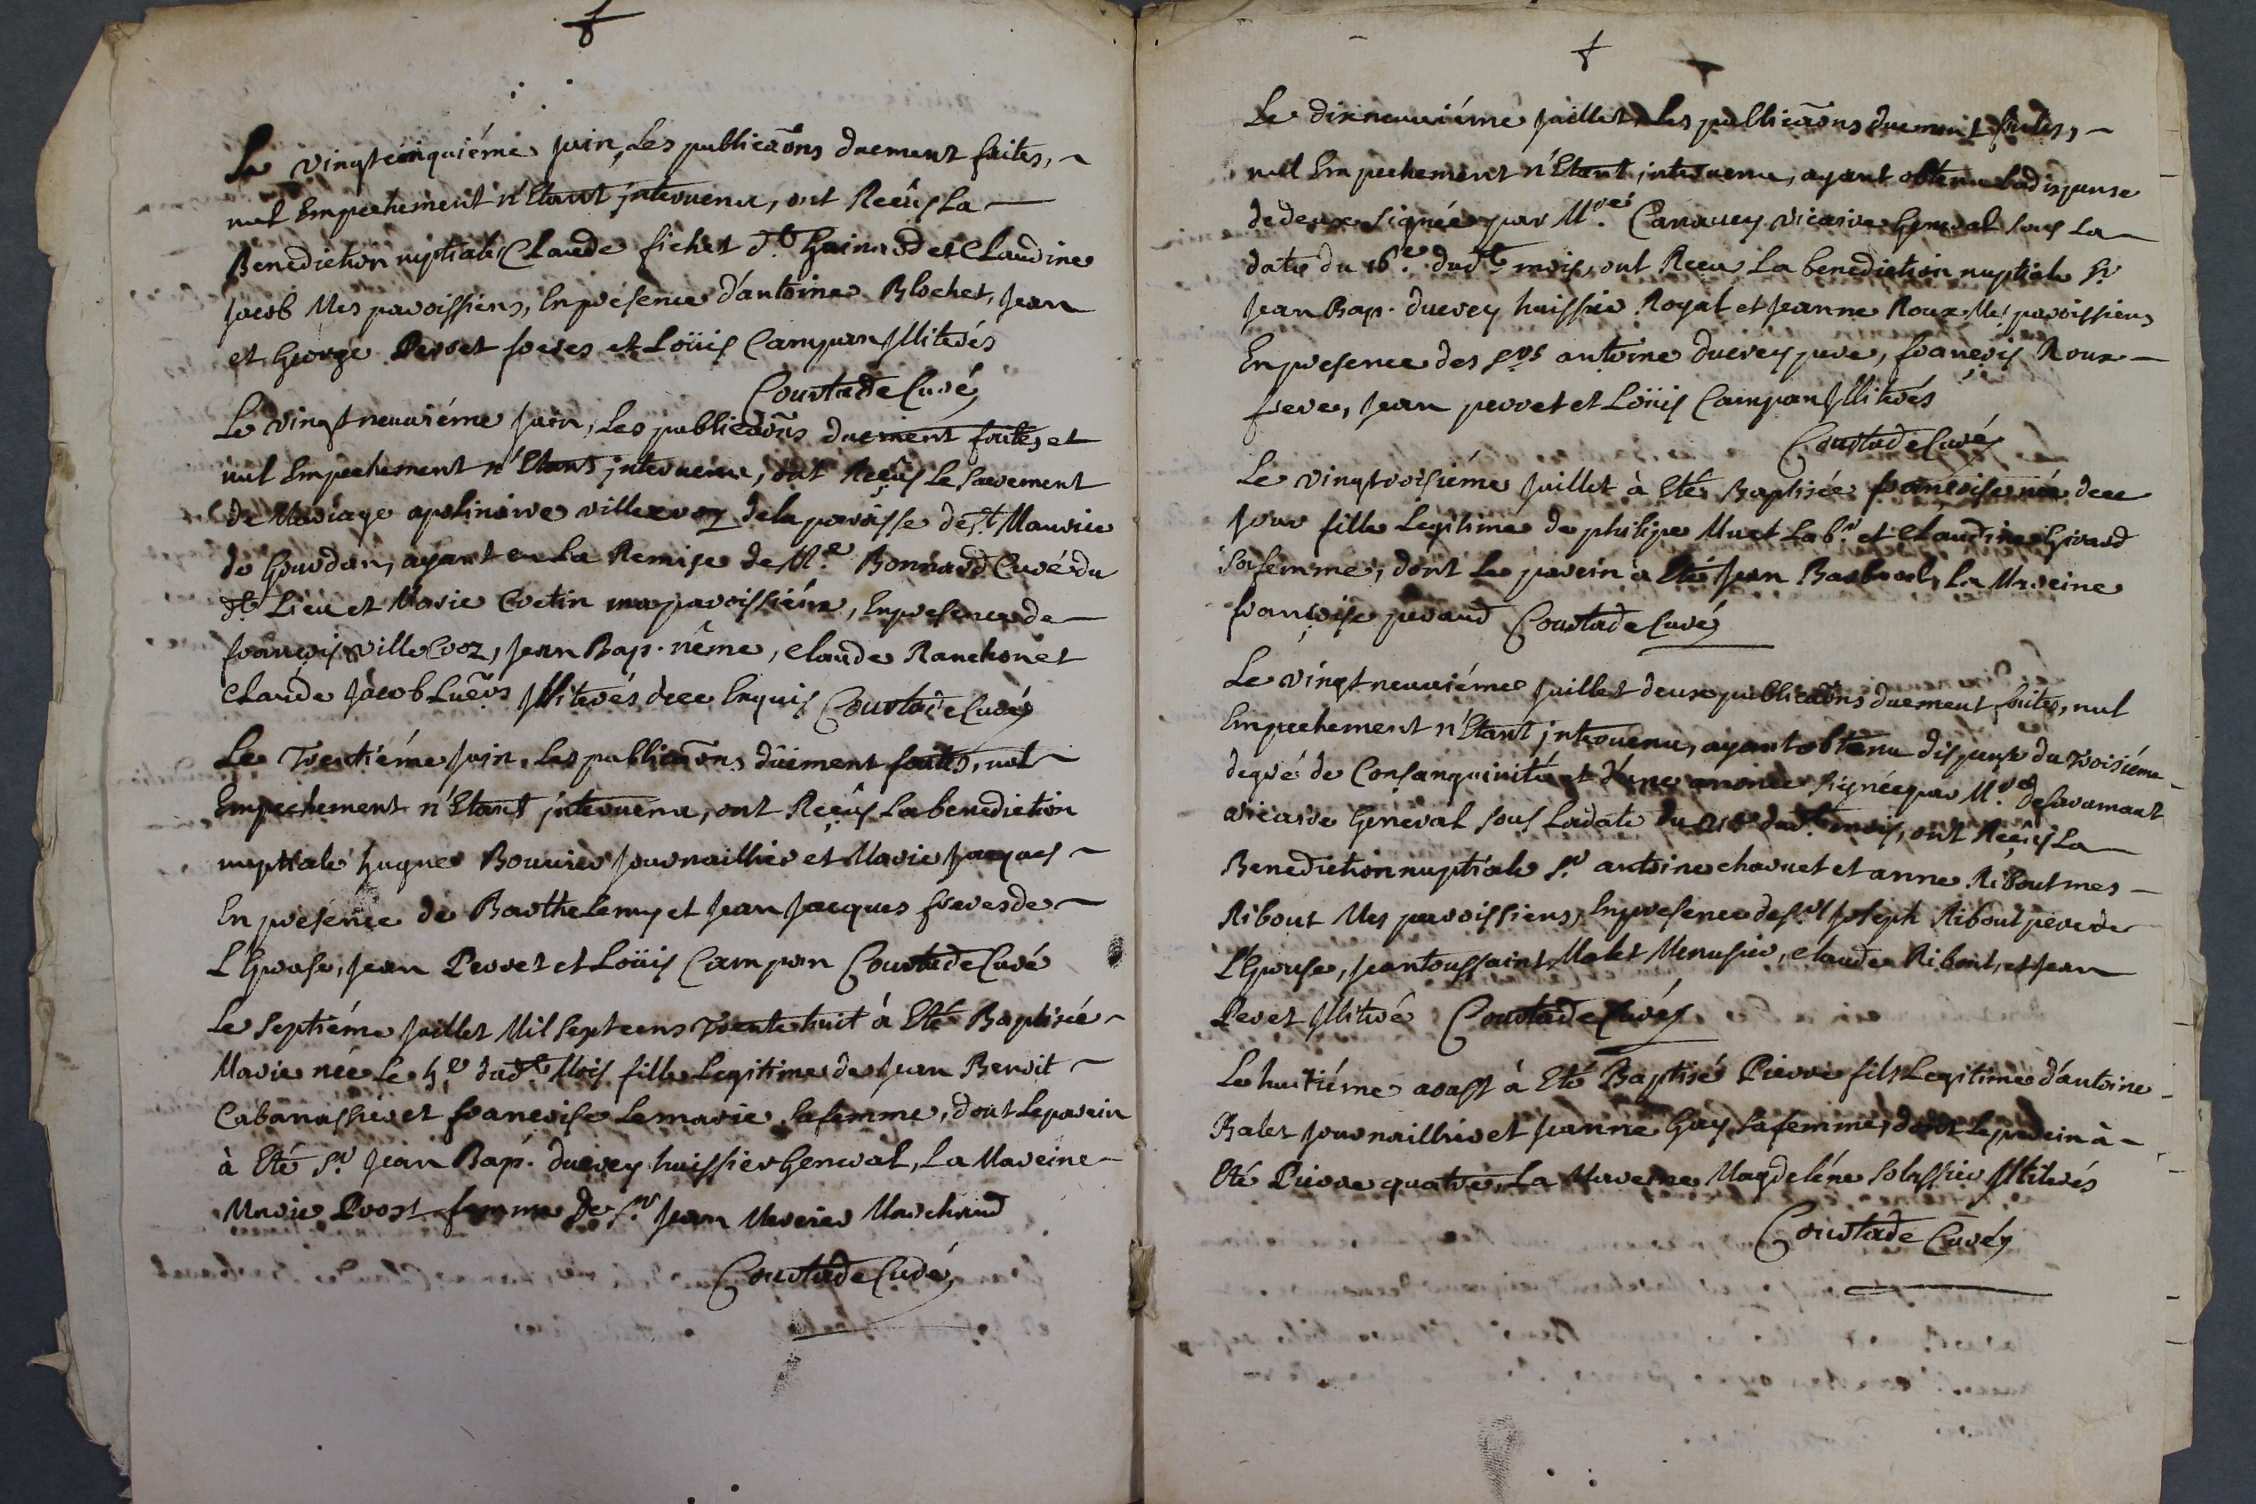 Le vingtcinquiéme juin, Les publicãons duement faites,
nul Empechement n'Etant intervenu, ont Reçûs La
Benediction nuptiale Claude fichet dt. Guinard et Claudine
Jacob Mes paroissiens, En présence d'antoine Blochet, Jean
et George Perret freres et Loüis Campan Illiterés
Courtade Curé
Le vingtneuviéme juin, Les publicãons duement faites et
nul Empechement n'Etant intervenu, ont Reçûs Le Sacrement
de Mariage apolinaire villecroz de la paroisse de St. Maurice
de Gourdan, ayant eu La Remise de Mre. Bonnard Curé du
dt. Lieu et Marie Cretin ma paroissiene, En presence de
françois villecroz, Jean Bap. nême, Claude Ranchon et
Claude Jacob Illiterés de ce Enquis Courtade Curé
Le Trentiéme juin, Les publicãons dûement faites, nul
Empechement n'Etant intervenu, ont Reçûs La benediction
nuptiale hugues Bouvier journaillier et Marie Jacques
En présence de Barthelemy et Jean Jacques freres de
L'Epouse, Jean Perret et Loüis Campan Courtade Curé
Le Septiéme juillet Mil Sept cens trente huit à Eté Baptisée
Marie née Le 5e dudt. Mois fille Legitime de Jean Benoit
Cabanassier et francoise Lemarie sa femme, dont Le parein
à Eté Sr. Jean Bap. ducrey huissier General, La Mareine
Marie Prost femme de Sr. Jean Mercier Marchand
Courtade Curé
Le dixneuviéme juillet Les publicãons duement faites,
nul Empechement n'Etant intervenu, ayant obtenu La dispense
de deux signée par Mre. Canavey vicaire General sous La
date du 16e. dudt. mois, ont Reçu La benediction nuptiale Sr.
Jean Bap. ducrey huissier Royal et Jeanne Roux Mes paroissiens
En presence des Srs antoine ducrey pere, françois Roux
frere, Jean perret et Loüis Campan Illiterés
Courtade Curé
Le vingtroisiéme juillet à Eté Baptisée françoise née de ce
jour fille Legitime de philipe Muet Labr. et Claudine Girard
Sa femme, dont Le parein a Eté Jean La Mareine
françoise peraud Courtade Curé
Le vingtneuviéme juillet deux publicãons duement faites, nul
Empechement n'Etant intervenu, ayant obtenu dispense du troisiéme
degré de Consanguinité et d'une annonce signée par Mre de Savamant
vicaire General sous La date du dudt. mois, ont Reçûs La
Benediction nuptiale Sr. antoine charvet et anne Ribout mes
Ribout Mes paroissiens, En presence des Srs Joseph Ribout pere de
L'Epouse, Jean toussaint Malet Menusier, Claude Ribout, et Jean
Peret Illitré Courtade Curé
Le huitiéme aoust à Eté Baptisé Pierre fils Legitime d'antoine
Balet journaillier et Jeanne Gay Sa femme, dont Le parein à
Eté Pierre quatre, La Mareine Magdeléne Solassier Illiterés
Courtade Curé